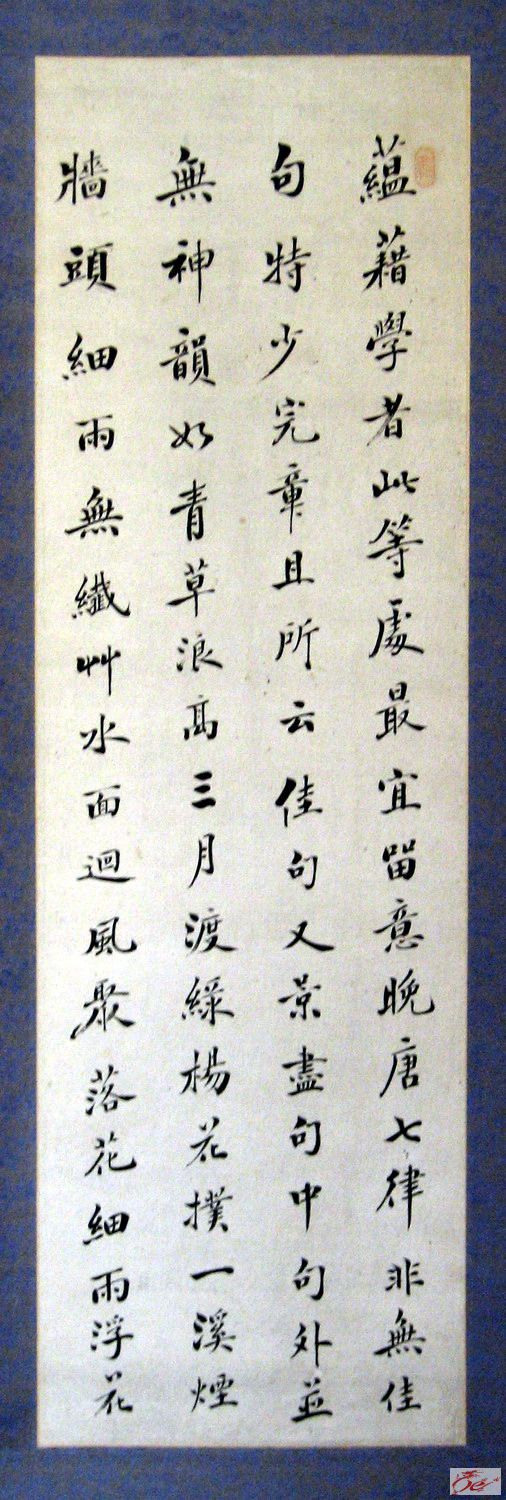 蘊藉學者此等處最宜留意晚唐七律非無佳
句特少完章且所云佳句又景盡句中句外並
無神韻如青草浪高三月渡綠楊花撲一溪煙
牆頭細雨無纖艸水面迴風聚落花細雨浮花